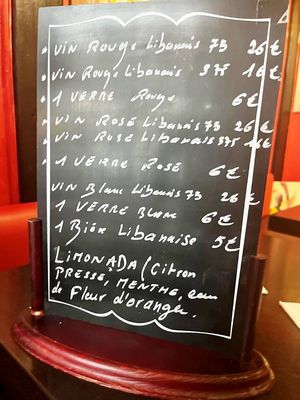 • VIN ROUGE Libanais 75 26 €
• VIN ROUGE Libanais 375 16 €
• 1 VERRE ROUGE 6 €
• VIN ROSÉ Libanais 75 26 €
• VIN ROSÉ Libanais 375 16 €
• 1 VERRE ROSÉ 6 €
VIN Blanc Libanais 75 26 €
1 VERRE Blanc 6 €
1 Bière Libanaise 5 €
LIMONADA (Citron
PRESSÉ, MENTHE, eau
de Fleur d'oranger.